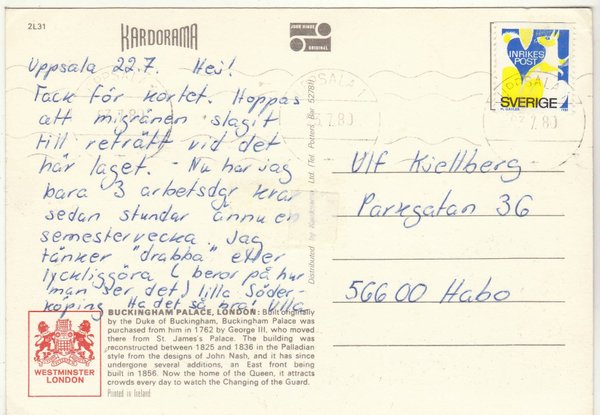 2L31
KARDORAMA
JOHN HINDE
ORIGINAL
INRIKES
POST
SVERIGE
UPPSALA
7.80
Uppsala 22.7. Hej!
Tack för kortet. Hoppas
att migränen slagit
till reträtt vid det
här laget. - Nu har jag
bara 3 arbetsdgr kvar
sedan stundar ännu en
semestervecka. Jag
tänker "drabba" eller
lyckliggöra (beror på hur
man ser det) lilla Söder-
köping. Ha det så bra! Ulla
Ulf Kjellberg
Parkgatan 36
566 00 Habo
Distributed by Kardorama Ltd. (Tel. Potters Bar 52781)
BUCKINGHAM PALACE, LONDON: Built originally
by the Duke of Buckingham, Buckingham Palace was
purchased from him in 1762 by George III, who moved
there from St. James's Palace. The building was
reconstructed between 1825 and 1836 in the Palladian
style from the designs of John Nash, and it has since
undergone several additions, an East front being
built in 1856. Now the home of the Queen, it attracts
crowds every day to watch the Changing of the Guard.
Printed in Ireland
WESTMINSTER
LONDON